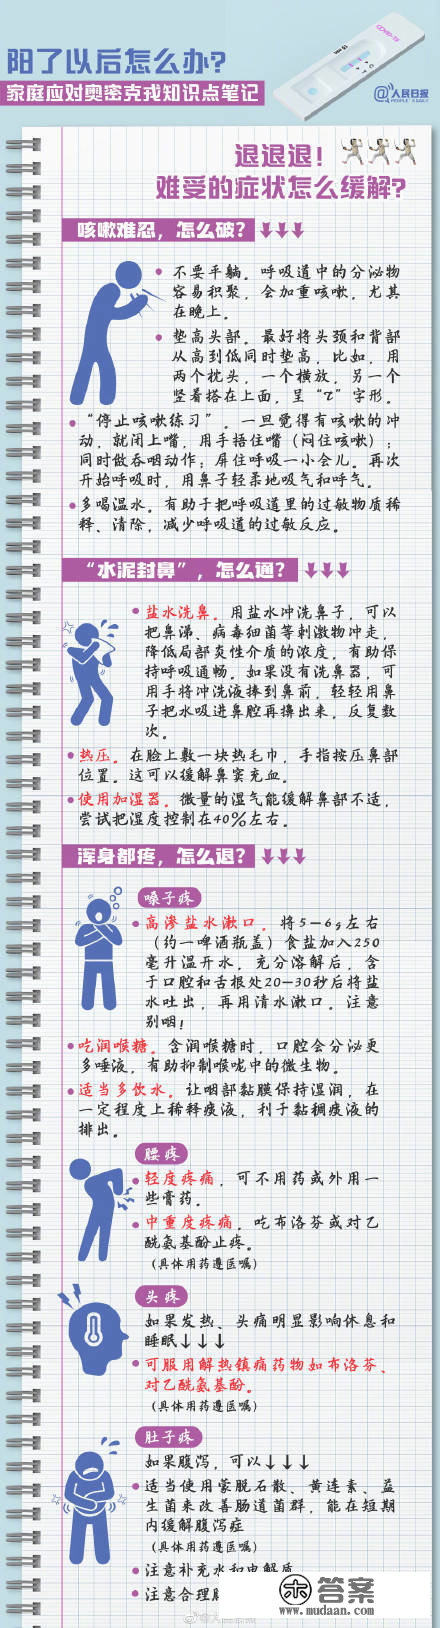 阳了以后怎么办?
家庭应对奥密克戎知识点笔记
COVID-19
@人民日报
PEOPLE'S DAILY
退退退!
难受的症状怎么缓解?
咳嗽难忍,怎么破?
不要平躺。呼吸道中的分泌物
容易积聚,会加重咳嗽,尤其
在晚上。
垫高头部。最好将头颈和背部
从高到低同时垫高,比如,用
两个枕头,一个横放,另一个
竖着搭在上面,呈“乙”字形。
“停止咳嗽练习”。一旦觉得有咳嗽的冲
动,就闭上嘴,用手捂住嘴(闷住咳嗽);
同时做吞咽动作;屏住呼吸一小会儿。再次
开始呼吸时,用鼻子轻柔地吸气和呼气。
多喝温水。有助于把呼吸道里的过敏物质稀
释、清除,减少呼吸道的过敏反应。
“水泥封鼻”,怎么通?
盐水洗鼻。用盐水冲洗鼻子,可以
把鼻涕、病毒细菌等刺激物冲走,
降低局部炎性介质的浓度,有助保
持呼吸通畅。如果没有洗鼻器,可
用手将冲洗液捧到鼻前,轻轻用鼻
子把水吸进鼻腔再擤出来,反复数
次。
热压。在脸上敷一块热毛巾,手指按压鼻部
位置。这可以缓解鼻窦充血。
使用加湿器。微量的湿气能缓解鼻部不适,
尝试把湿度控制在40%左右。
浑身都疼,怎么退?
嗓子疼
高渗盐水漱口。将5—6g左右
(约一啤酒瓶盖)食盐加入250
毫升温开水,充分溶解后,含
于口腔和舌根处20—30秒后将盐
水吐出,再用清水漱口。注意
别咽!
吃润喉糖。含润喉糖时,口腔会分泌更
多唾液,有助抑制喉咙中的微生物。
适当多饮水。让咽部黏膜保持湿润,在
一定程度上稀释痰液,利于黏稠痰液的
排出。
腰疼
轻度疼痛,可不用药或外用一
些膏药。
中重度疼痛。吃布洛芬或对乙
酰氨基酚止疼。
(具体用药遵医嘱)
头疼
如果发热、头痛明显影响休息和
睡眠↓↓↓
可服用解热镇痛药物如布洛芬、
对乙酰氨基酚。
(具体用药遵医嘱)
肚子疼
如果腹泻,可以↓↓↓
适当使用蒙脱石散、黄连素、益
生菌来改善肠道菌群,能在短期
内缓解腹泻症
(具体用药遵医嘱)
注意补充水和电解质
注意合理
答案
www.mudaan.com
@人民日报